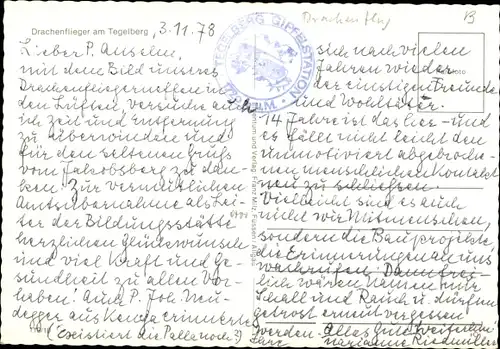 Drachenflieger am Tegelberg
3.11.78
Drachenflug
13
TEGELBERG GIPFELSTATION
Lieber P. Anselm,
mit dem Bild unseres
Drachenfliegerneffen in
den Lüften, versuche auch
ich Zeit und Entfernung
zu überwinden und
für den seltenen Gruß
vom Jakobsberg zu dan-
ken. Zur vermutlichen
Amtsübernahme als Lei-
ter der Bildungsstätte
herzlichen Glückwunsch
und viel Kraft und Ge-
sundheit zu allen Vor-
haben! Auch P. Joh. Neu-
degger aus Kenya erinnerte
(existiert die noch?)
sich nach vielen
Jahren wieder
der einstigen Freunde
und Wohltäter.
14 Jahre ist das her – und
es fällt nicht leicht den
unmotiviert abgebroche-
nen menschlichen Kontakt
neu zu schließen.
Vielleicht sind es auch
nicht wir Mitmenschen,
sondern die Bauprojekte
die Erinnerungen an uns
wachrufen. Dann frei-
lich wären Namen nur
Schall und Rauch u. dürfen
getrost erneut vergessen
werden. Alles Gute weiterhin
Marianne